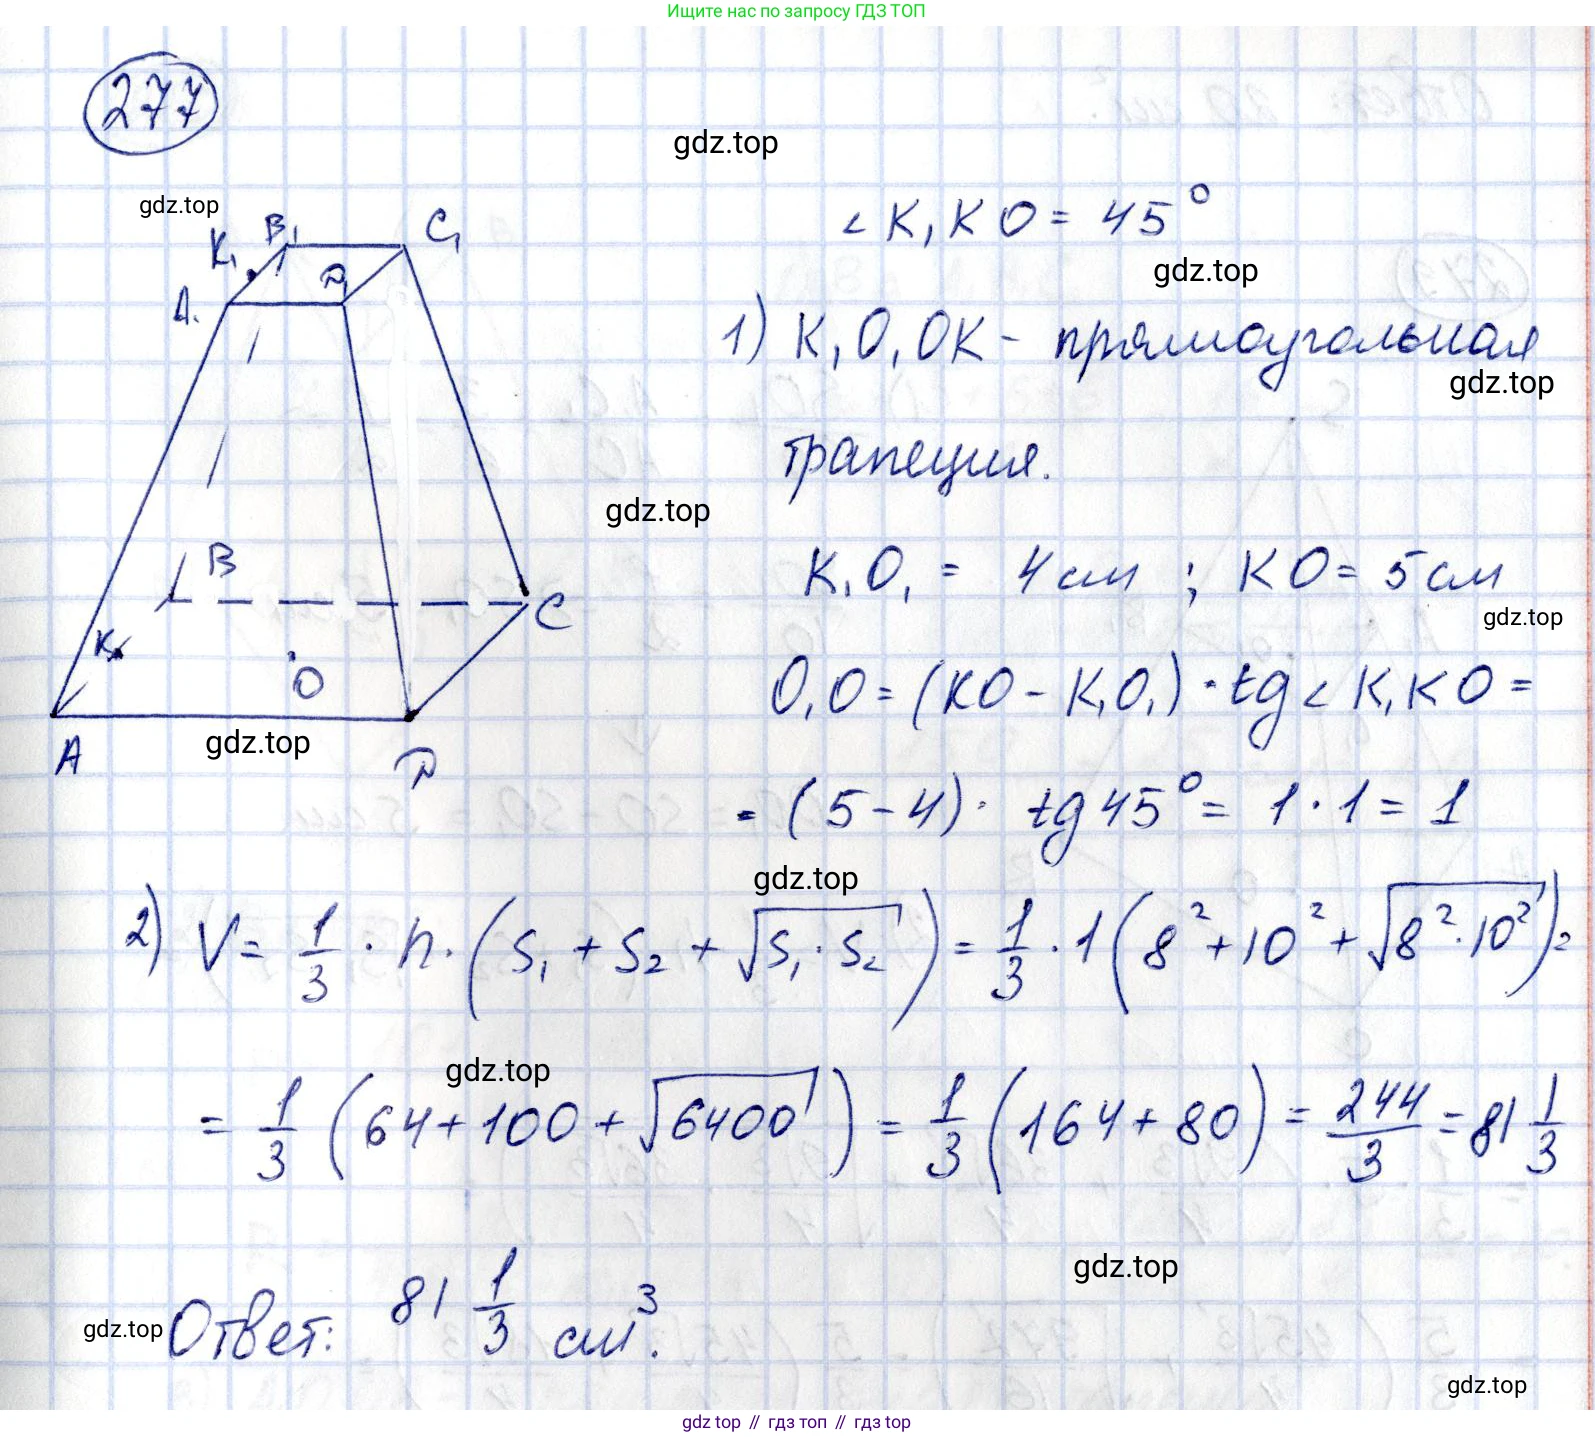 Ищите нас по запросу ГДЗ ТОП
277
gdz.top
gdz.top
∠K₁KO = 45°
gdz.top
K₁ B₁ C₁
A₁ D₁
1) K₁O₁OK - прямоугольная
gdz.top
трапеция.
gdz.top
B
K₁O₁ = 4 см ; KO = 5 см
C
gdz.top
K
O
O₁O = (KO - K₁O₁) · tg ∠ K₁KO =
gdz.top
A D
= (5 - 4) · tg 45° = 1 · 1 = 1
gdz.top
2) V = 1/3 · h · (S₁ + S₂ + √(S₁ · S₂)) = 1/3 · 1 (8² + 10² + √(8² · 10²)) =
gdz.top
= 1/3 (64 + 100 + √6400) = 1/3 (164 + 80) = 244/3 = 81 1/3
gdz.top
gdz.top
Ответ: 81 1/3 см³.
gdz.top
gdz top // гдз топ // gdz top